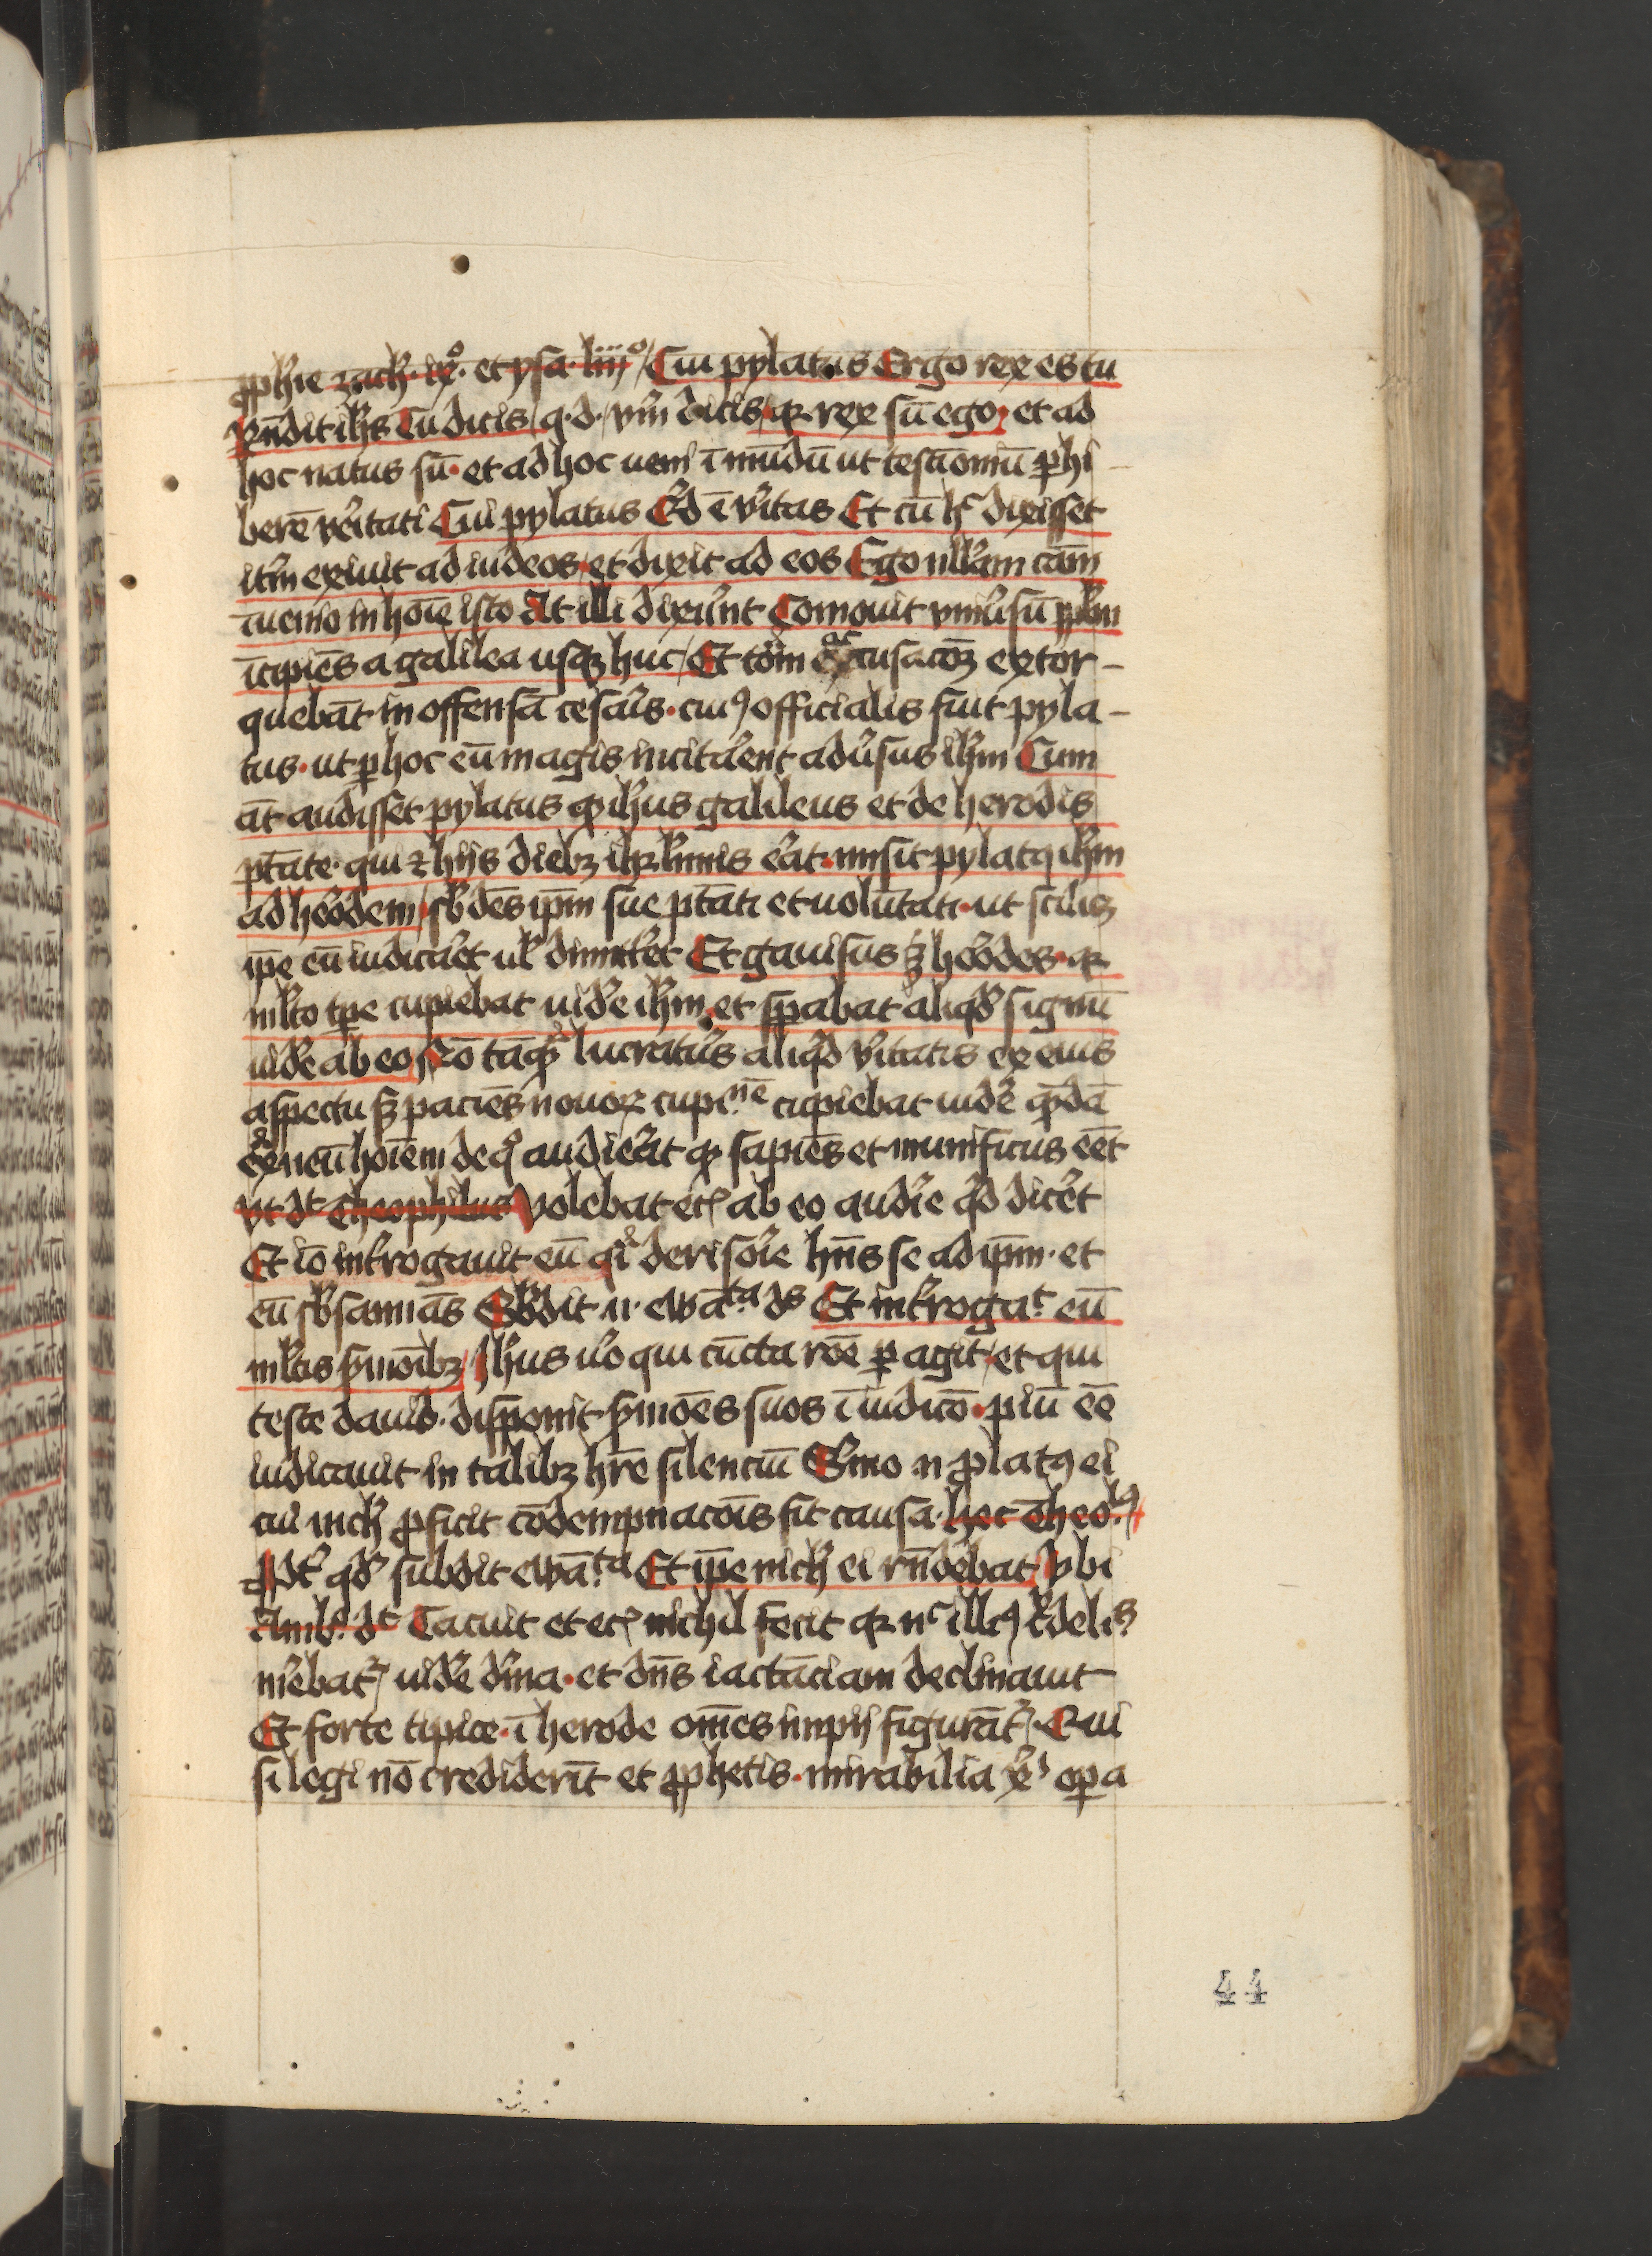 ꝓphie zach̓. ix̊. et ysa. liiij̊ Cui pylatus Ergo rex es tu
Rn̄dit ih̄s Tu dicis / q. d. / vm̄ dicis / qꝛ rex sū ego. et ad
hoc natus sū. et ad hoc ueni ī mūdū ut testīomū ꝑhi
bere ve̓itati Cui pylatus Qd ē v̓itas Et cū h̓ dixisset
it̓m exiuit ad iudeos / et dixit ad eos Ego null̓am cām
īuenio in hoīe isto At illi dixer̓nt Comouit vniu̓sū ppl̓m
īcipiēs a galilea usqꝫ huc / Et toī̓m accusacōꝫ extor-
quebāt in offensā cesar̓is. cuiꝰ officialis fuit pyla-
tus. ut ꝑ hoc eū magis incitar̓ent adu̓sus ih̄m Cum
āt audisset pylatus ꝙ ih̄us galileus et de herodis
ptāte. qui ⁊ hijs diebꝫ ih̓rl̓imis er̓at. misit pylatꝰ ih̄m
ad her̓odem / sb̓dēs ip̄m sue ptāti et volūtati. ut scilꝫ
ip̄e eū iudicar̓et ul̓ dimitt̓et Et gauisus ꝫ her̓odes. qꝛ
ml̓to tp̄e cupiebat uid̓e ih̄m et sꝑabat aliqd̓ signū
uid̓e ab eo Nō tāqȝ̓ lucratur̓s aliqd̓ v̓itatis ex eius
aspectu sꝫ paciēs nouoꝝ cupi.ⁿᵉ cupiebat uid̓e qȝ̓dā
ex̓neū hoīem de qͦ audier̓at ꝙ sapiēs et munificus eēt
vt dt̓ Theophilus Volebat ecꝭ ab eo audir̓e qd̓ dicer̓et
Et iō int̓rogauit eū qi̓ derisor̓ie hn̄s se ad ip̄m. et
eū sb̓sannās Sb̓dit .n. ewā.ᵗᵃ ds̓ Et int̓rogaᵗ eū
ml̓tis s̓monibꝫ / Ih̄us u̓o qui cūcta rōe ꝑagit / et qui
teste dauid. disponit s̓mōes suos ī iudicō. piū eē
iudicauit in talibꝫ hr̄e silenciū S̓mo .n. ꝓlatꝰ ei
cui nich̓ ꝓficit cōdempnacōis fit causa. hec Theo.ˡꝰ
Ppt̓ qd̓ subdit ewā.ᵗᵃ Et ip̄e nich̓ ei rn̄debat Vbi
Amb̓. dt̓ Tacuit et ecꝭ nichil fecit qꝛ nᶜ illiꝰ cr̓delis
mer̓ebat̓ uid̓e diu̓ina. et dn̄s iactāciam declinauit
Et forte tipice. ī herode om̄es impij figurāt̓. Qui
si legi nō crediderīt et ꝓphetis. mirabilia xp̓i oꝑa
44